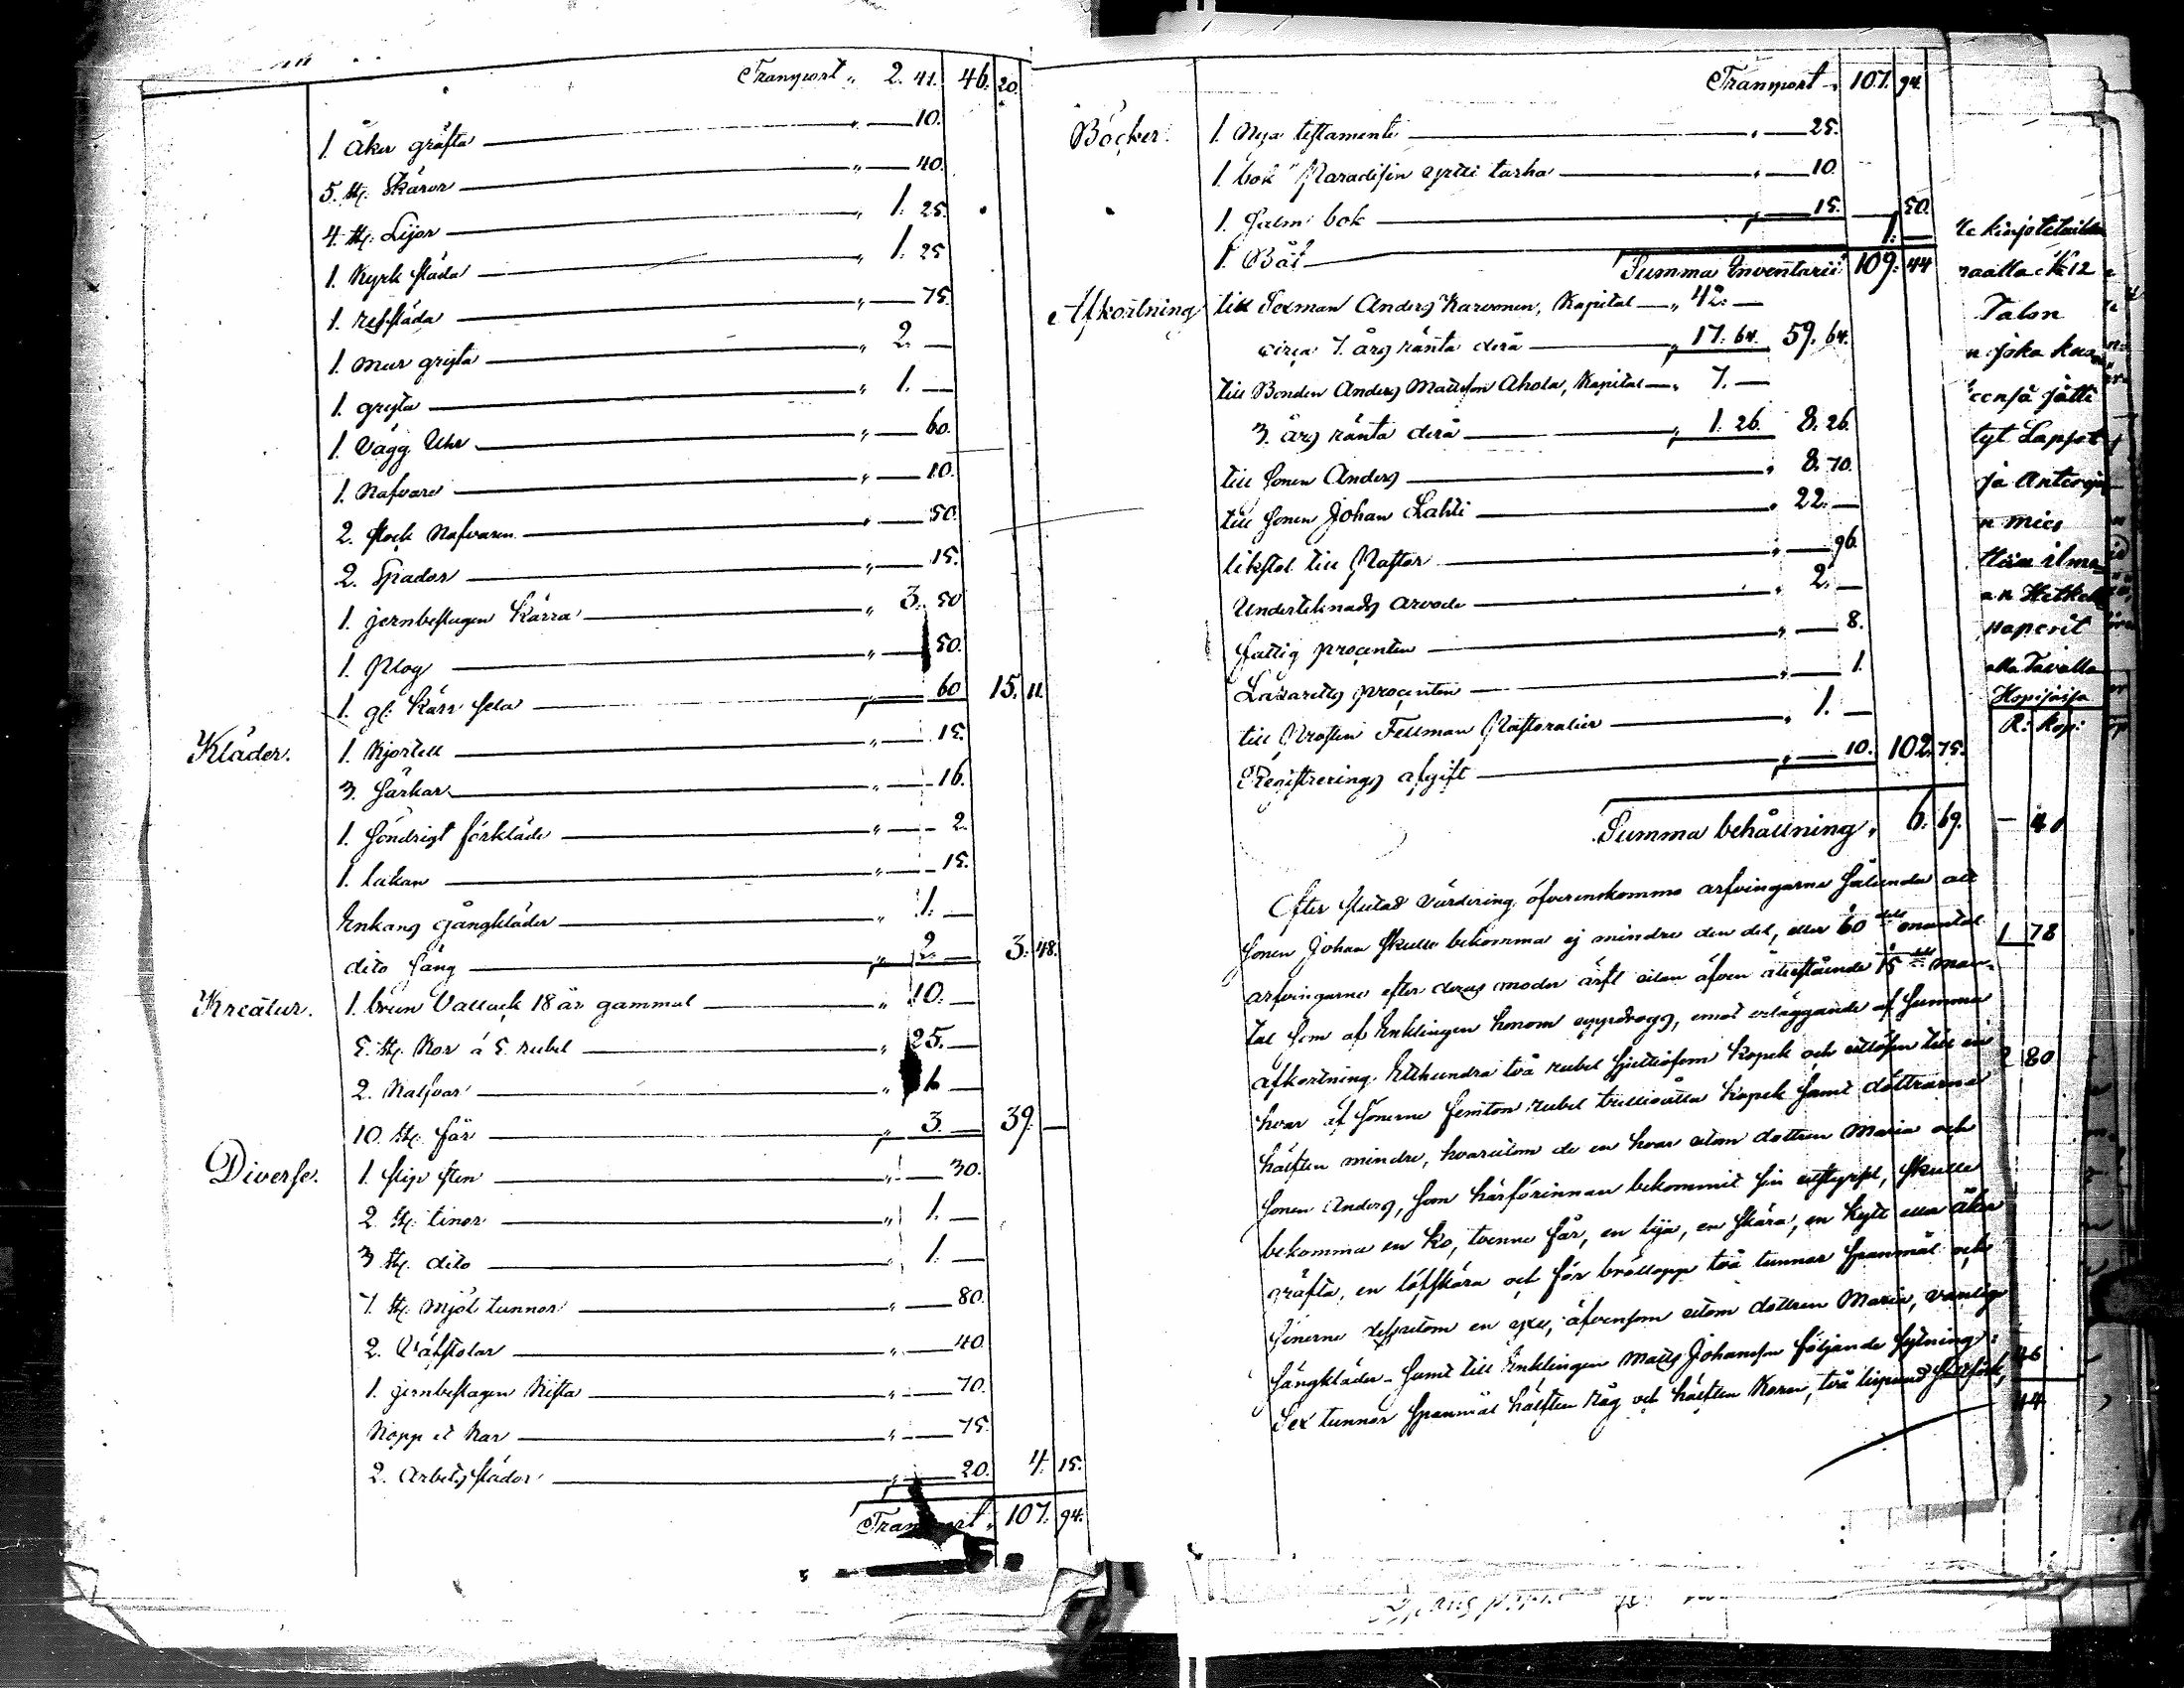 Transport " 2. 41. 46. 20.
1. Åker gräfta " — 10.
5. st. Skäror " — 40.
4. st. Lijor " 1. 25.
1. Kyrk släda " 1. 25
1. ressläda " — 75.
1. mur gryta " 2. —
1. gryta " 1. —
1. Vägg Uhr " — 60.
1. Nafvare " — 10.
2. stock Nafvaren " — 50.
2. Spador " — 15.
1. jernbeslagen Kärra " 3. 50
1. Plog " — 50.
1. gl: Kärr sela " — 60 15. 11.
Kläder. 1. Kjortell " — 15.
3. Särkar " — 16.
1. Söndrigt förkläde " — 2.
1. lakan " — 15.
Enkans gångkläder " 1. —
dito säng " 2. — 3. 48.
Kreatur. 1. brun Vallack 18 år gammal " 10. —
5. st. Kor á 5. rubel " 25. —
2. Kalfvar " 1. —
10. st. får " 3. — 39. —
Diverse. 1. slip sten " — 30.
2. st. tinor " 1. —
3 st. dito " 1. —
7. st. mjöl tunnor " — 80.
2. Väfstolar " — 40.
1. jernbeslagen Kista " — 70.
Kopp et Kar " — 75.
2. Arbets slädor " — 20. 4. 15.
Transport " 107. 94.
Transport " 107. 94.
Böcker. 1. Nya testamente " — 25.
1. bok "Paradisin yrtti tarha " — 10.
1. Salm bok " — 15. — 50.
1. Båt 1. —
Summa Inventarii 109. 44
Afkortning till Sexman Anders Karvonen, Kapital " 42. —
circa 7. års ränta derå " 17. 64. 59. 64.
till Bonden Anders Mattsson Ahola, Kapital " 7. —
3. års ränta derå " 1. 26. 8. 26.
till sonen Anders " 8. 70.
till sonen Johan Lahti " 22. —
likstol till Pastor " — 96.
Undertecknads arvode " 2. —
fattig procenten " — 8.
Lazaretts procenten " — 1.
till Prosten Fellman Pastoralier " 1. —
Registrerings afgift " — 10. 102. 75.
Summa behållning " 6. 69.
Efter slutad värdering öfverenskommo arfvingarne sålunda att
sonen Johan skulle bekomma ej mindre den del, eller 60 dels mantal
arfvingarne efter deras moder ärft utan äfven återstående 15 dels man-
tal som af Enklingen honom uppdrogs, emot erläggande af summa
afkortning Etthundra två rubel sjuttiofem kopek och utlösen till en
hvar af sönerne femton rubel trettioåtta kopek samt döttrarne
hälften mindre, hvarutom de en hvar utom dottren Maria och
sonen Anders, som härförinnan bekommit sin utstyrsel, skulle
bekomma en ko, tvenne får, en lija, en skära, en kytt eller åker
gräfta, en löfskära och för bröllopp två tunnor spanmål och
sönerne dessutom en yxe, äfvensom utom dottren Maria, vanliga
sängkläder samt till Enklingen Matts Johansson följande sytning:
Sex tunnor spanmål hälften Råg och hälften Korn, två lispund
raalla № 12
Talon
tyt
ja
n mies
paperit
alla Tavalla
R: Kop:
— 40
1 78
2 80
46
44